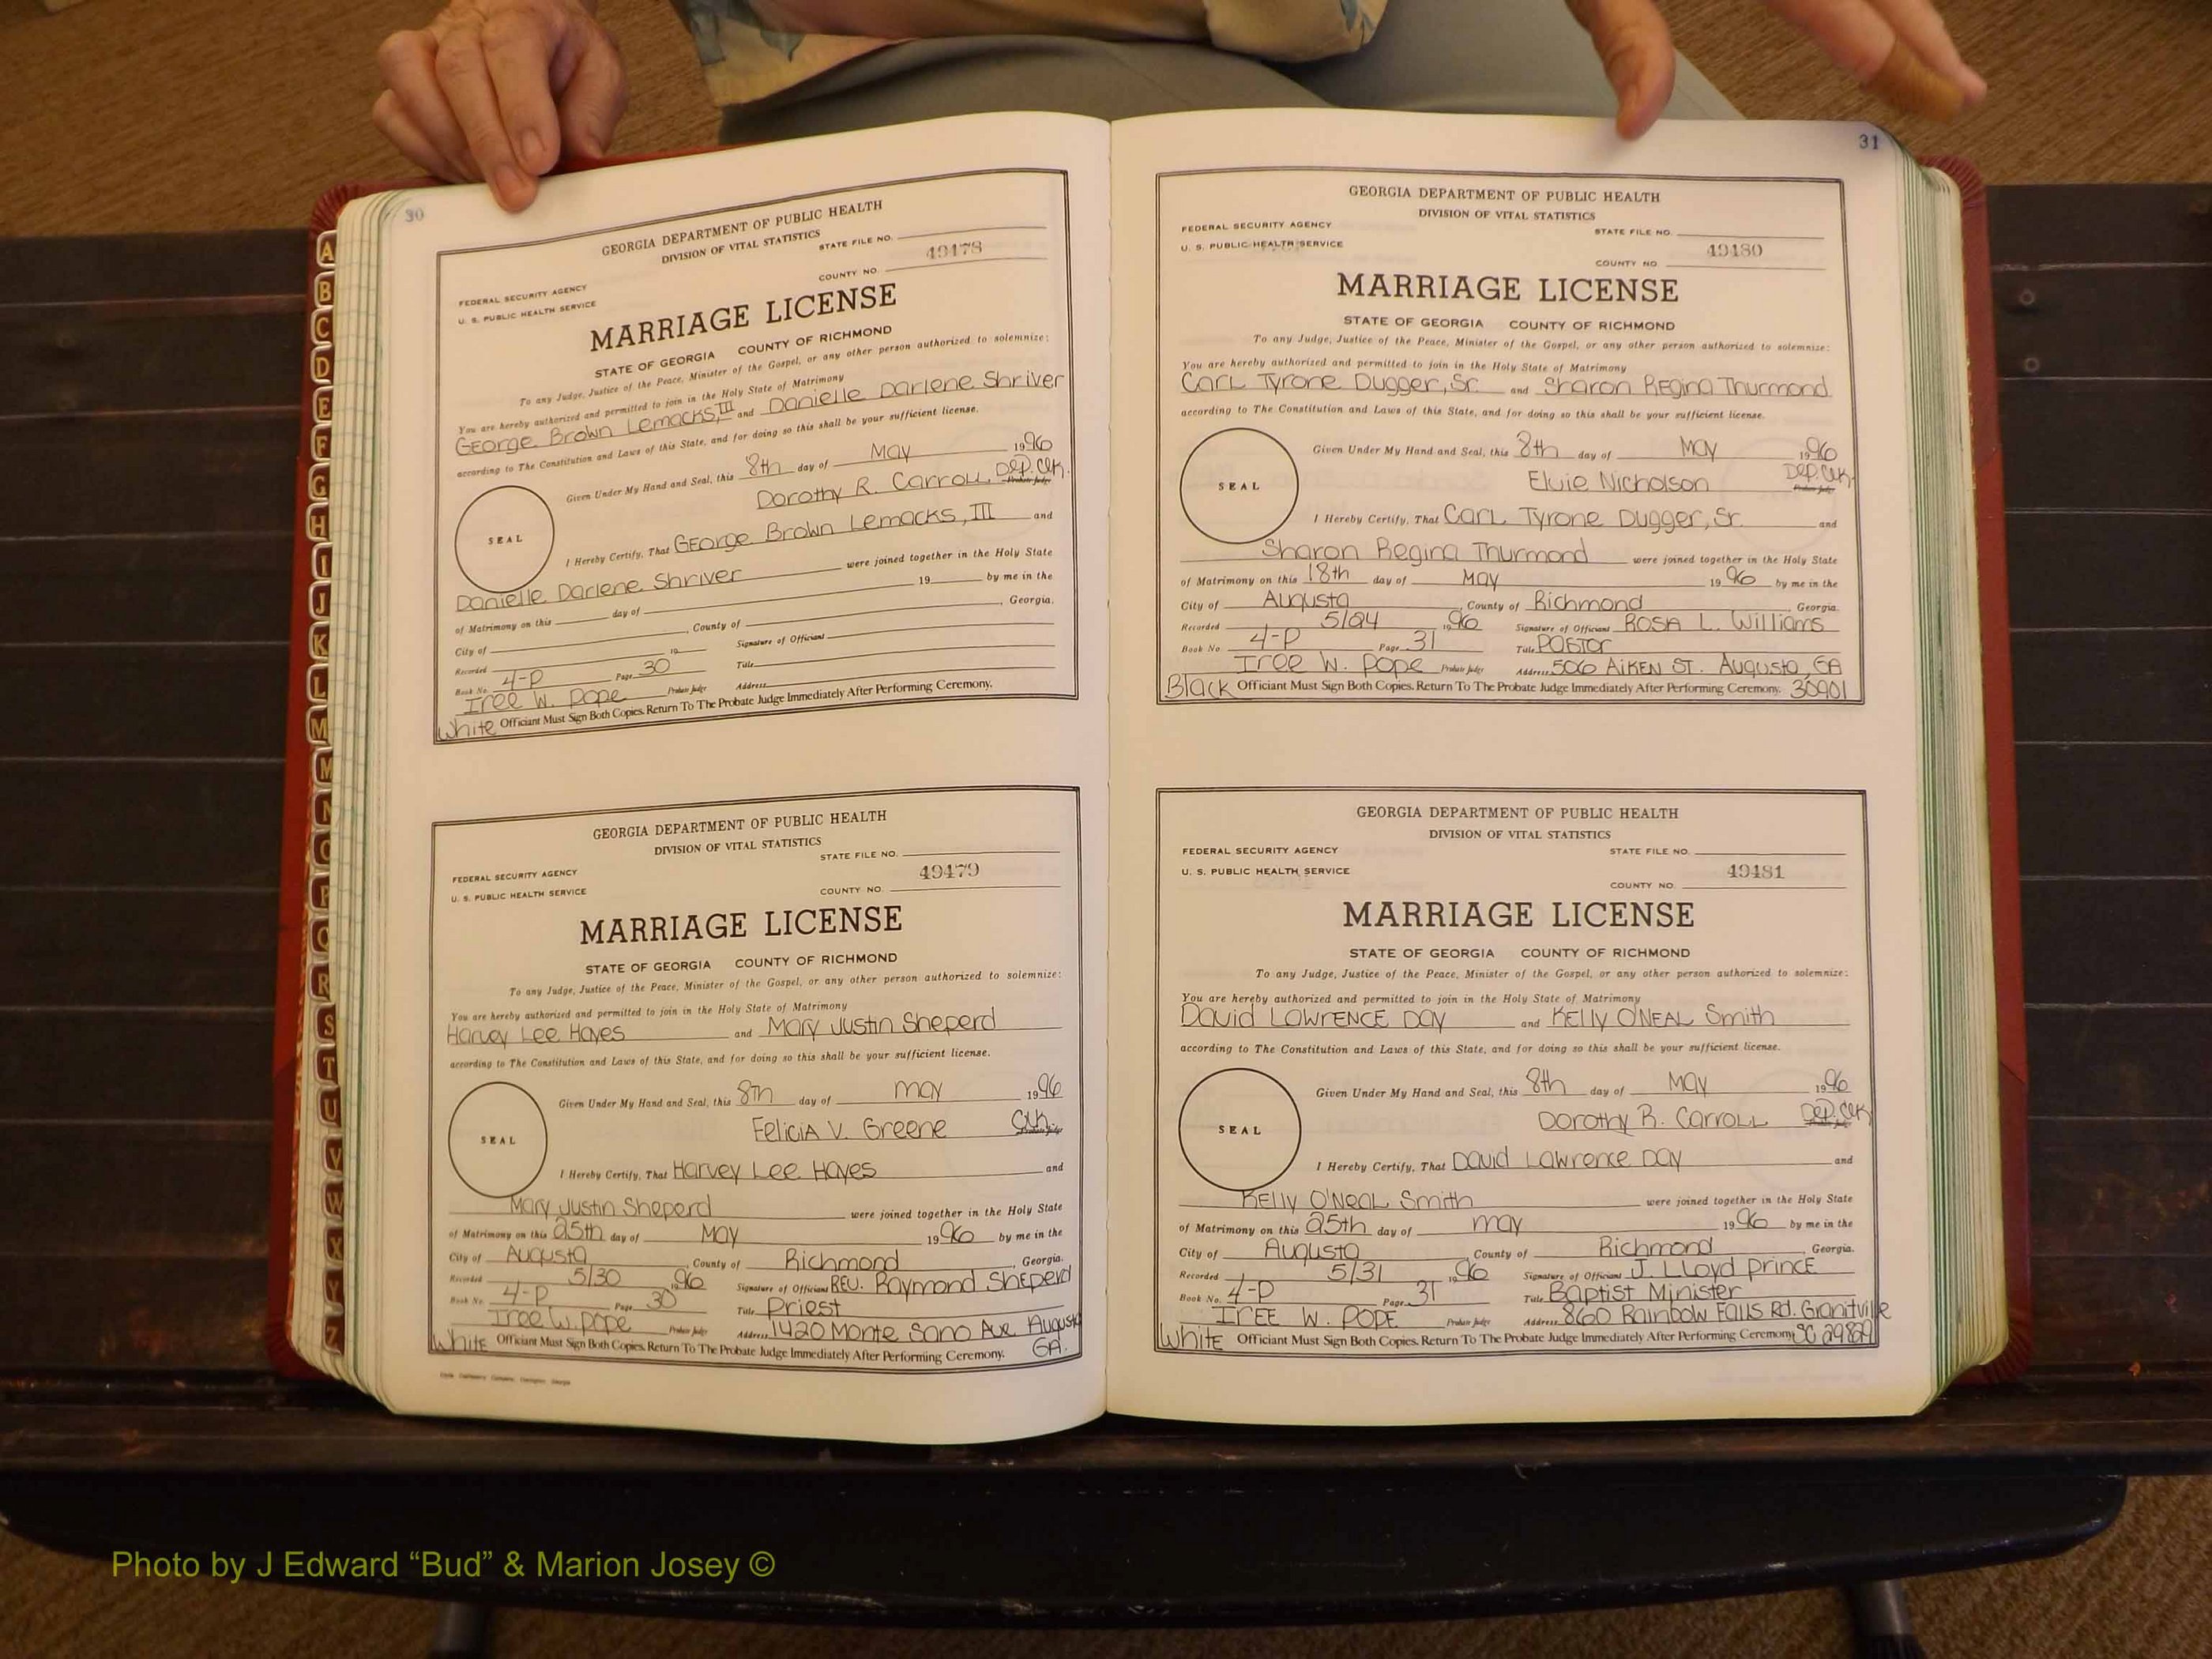 30
GEORGIA DEPARTMENT OF PUBLIC HEALTH
DIVISION OF VITAL STATISTICS
STATE FILE NO.
49478
COUNTY NO.
FEDERAL SECURITY AGENCY
U. S. PUBLIC HEALTH SERVICE
MARRIAGE LICENSE
STATE OF GEORGIA COUNTY OF RICHMOND
To any Judge, Justice of the Peace, Minister of the Gospel, or any other person authorized to solemnize:
You are hereby authorized and permitted to join in the Holy State of Matrimony
George Brown Lemacks, III and Danielle Darlene Shriver
according to The Constitution and Laws of this State, and for doing so this shall be your sufficient license.
Given Under My Hand and Seal, this 8th day of May 1996
Dorothy R. Carroll, Dep. Clk. Probate Judge
SEAL
I Hereby Certify, That George Brown Lemacks, III and
Danielle Darlene Shriver were joined together in the Holy State
of Matrimony on this day of 19 by me in the
City of , County of , Georgia.
Recorded 19 Signature of Officiant
Book No. 4-P Page 30 Title
Iree W. Pope Probate Judge Address
White Officiant Must Sign Both Copies. Return To The Probate Judge Immediately After Performing Ceremony.
GEORGIA DEPARTMENT OF PUBLIC HEALTH
DIVISION OF VITAL STATISTICS
STATE FILE NO.
49479
COUNTY NO.
FEDERAL SECURITY AGENCY
U. S. PUBLIC HEALTH SERVICE
MARRIAGE LICENSE
STATE OF GEORGIA COUNTY OF RICHMOND
To any Judge, Justice of the Peace, Minister of the Gospel, or any other person authorized to solemnize:
You are hereby authorized and permitted to join in the Holy State of Matrimony
Harvey Lee Hayes and Mary Justin Sheperd
according to The Constitution and Laws of this State, and for doing so this shall be your sufficient license.
Given Under My Hand and Seal, this 8th day of May 1996
Felicia V. Greene Clk. Probate Judge
SEAL
I Hereby Certify, That Harvey Lee Hayes and
Mary Justin Sheperd were joined together in the Holy State
of Matrimony on this 25th day of May 1996 by me in the
City of Augusta, County of Richmond, Georgia.
Recorded 5/30 1996 Signature of Officiant Rev. Raymond Sheperd
Book No. 4-P Page 30 Title Priest
Iree W. Pope Probate Judge Address 1420 Monte Sano Ave Augusta
White Officiant Must Sign Both Copies. Return To The Probate Judge Immediately After Performing Ceremony. GA.
31
GEORGIA DEPARTMENT OF PUBLIC HEALTH
DIVISION OF VITAL STATISTICS
FEDERAL SECURITY AGENCY
STATE FILE NO.
U. S. PUBLIC HEALTH SERVICE
49480
COUNTY NO.
MARRIAGE LICENSE
STATE OF GEORGIA COUNTY OF RICHMOND
To any Judge, Justice of the Peace, Minister of the Gospel, or any other person authorized to solemnize:
You are hereby authorized and permitted to join in the Holy State of Matrimony
Carl Tyrone Dugger, Sr. and Sharon Regina Thurmond
according to The Constitution and Laws of this State, and for doing so this shall be your sufficient license.
Given Under My Hand and Seal, this 8th day of May 1996
Elvie Nicholson Dep. Clk. Probate Judge
SEAL
I Hereby Certify, That Carl Tyrone Dugger, Sr. and
Sharon Regina Thurmond were joined together in the Holy State
of Matrimony on this 18th day of May 1996 by me in the
City of Augusta, County of Richmond, Georgia.
Recorded 5/24 1996 Signature of Officiant Rosa L. Williams
Book No. 4-P Page 31 Title Pastor
Iree W. Pope Probate Judge Address 506 Aiken St. Augusta, GA
Black Officiant Must Sign Both Copies. Return To The Probate Judge Immediately After Performing Ceremony. 30901
GEORGIA DEPARTMENT OF PUBLIC HEALTH
DIVISION OF VITAL STATISTICS
FEDERAL SECURITY AGENCY
STATE FILE NO.
U. S. PUBLIC HEALTH SERVICE
49481
COUNTY NO.
MARRIAGE LICENSE
STATE OF GEORGIA COUNTY OF RICHMOND
To any Judge, Justice of the Peace, Minister of the Gospel, or any other person authorized to solemnize:
You are hereby authorized and permitted to join in the Holy State of Matrimony
David Lawrence Day and Kelly O'Neal Smith
according to The Constitution and Laws of this State, and for doing so this shall be your sufficient license.
Given Under My Hand and Seal, this 8th day of May 1996
Dorothy R. Carroll Dep. Clk
SEAL
I Hereby Certify, That David Lawrence Day and
Kelly O'Neal Smith were joined together in the Holy State
of Matrimony on this 25th day of May 1996 by me in the
City of Augusta, County of Richmond, Georgia.
Recorded 5/31 1996 Signature of Officiant J. Lloyd Prince
Book No. 4-P Page 31 Title Baptist Minister
Iree W. Pope Probate Judge Address 860 Rainbow Falls Rd. Granitville
White Officiant Must Sign Both Copies. Return To The Probate Judge Immediately After Performing Ceremony. SC 29829
A
B
C
D
E
F
G
H
I
J
K
L
M
M
N
O
P
Q
R
S
T
U
V
W
X
Y
Z
Photo by J Edward “Bud” & Marion Josey ©